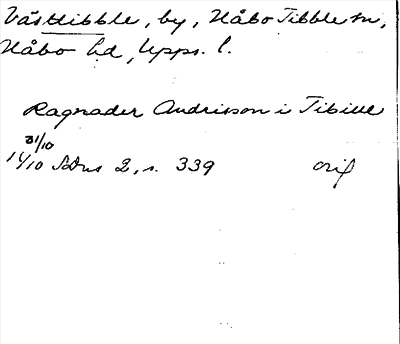 Västtibble, by, Håbo Tibble sn,
Håbo hd, Upps. l.
Ragnader Andrisson i Tibille
31/10
14/10 SDns 2, s. 339 orig